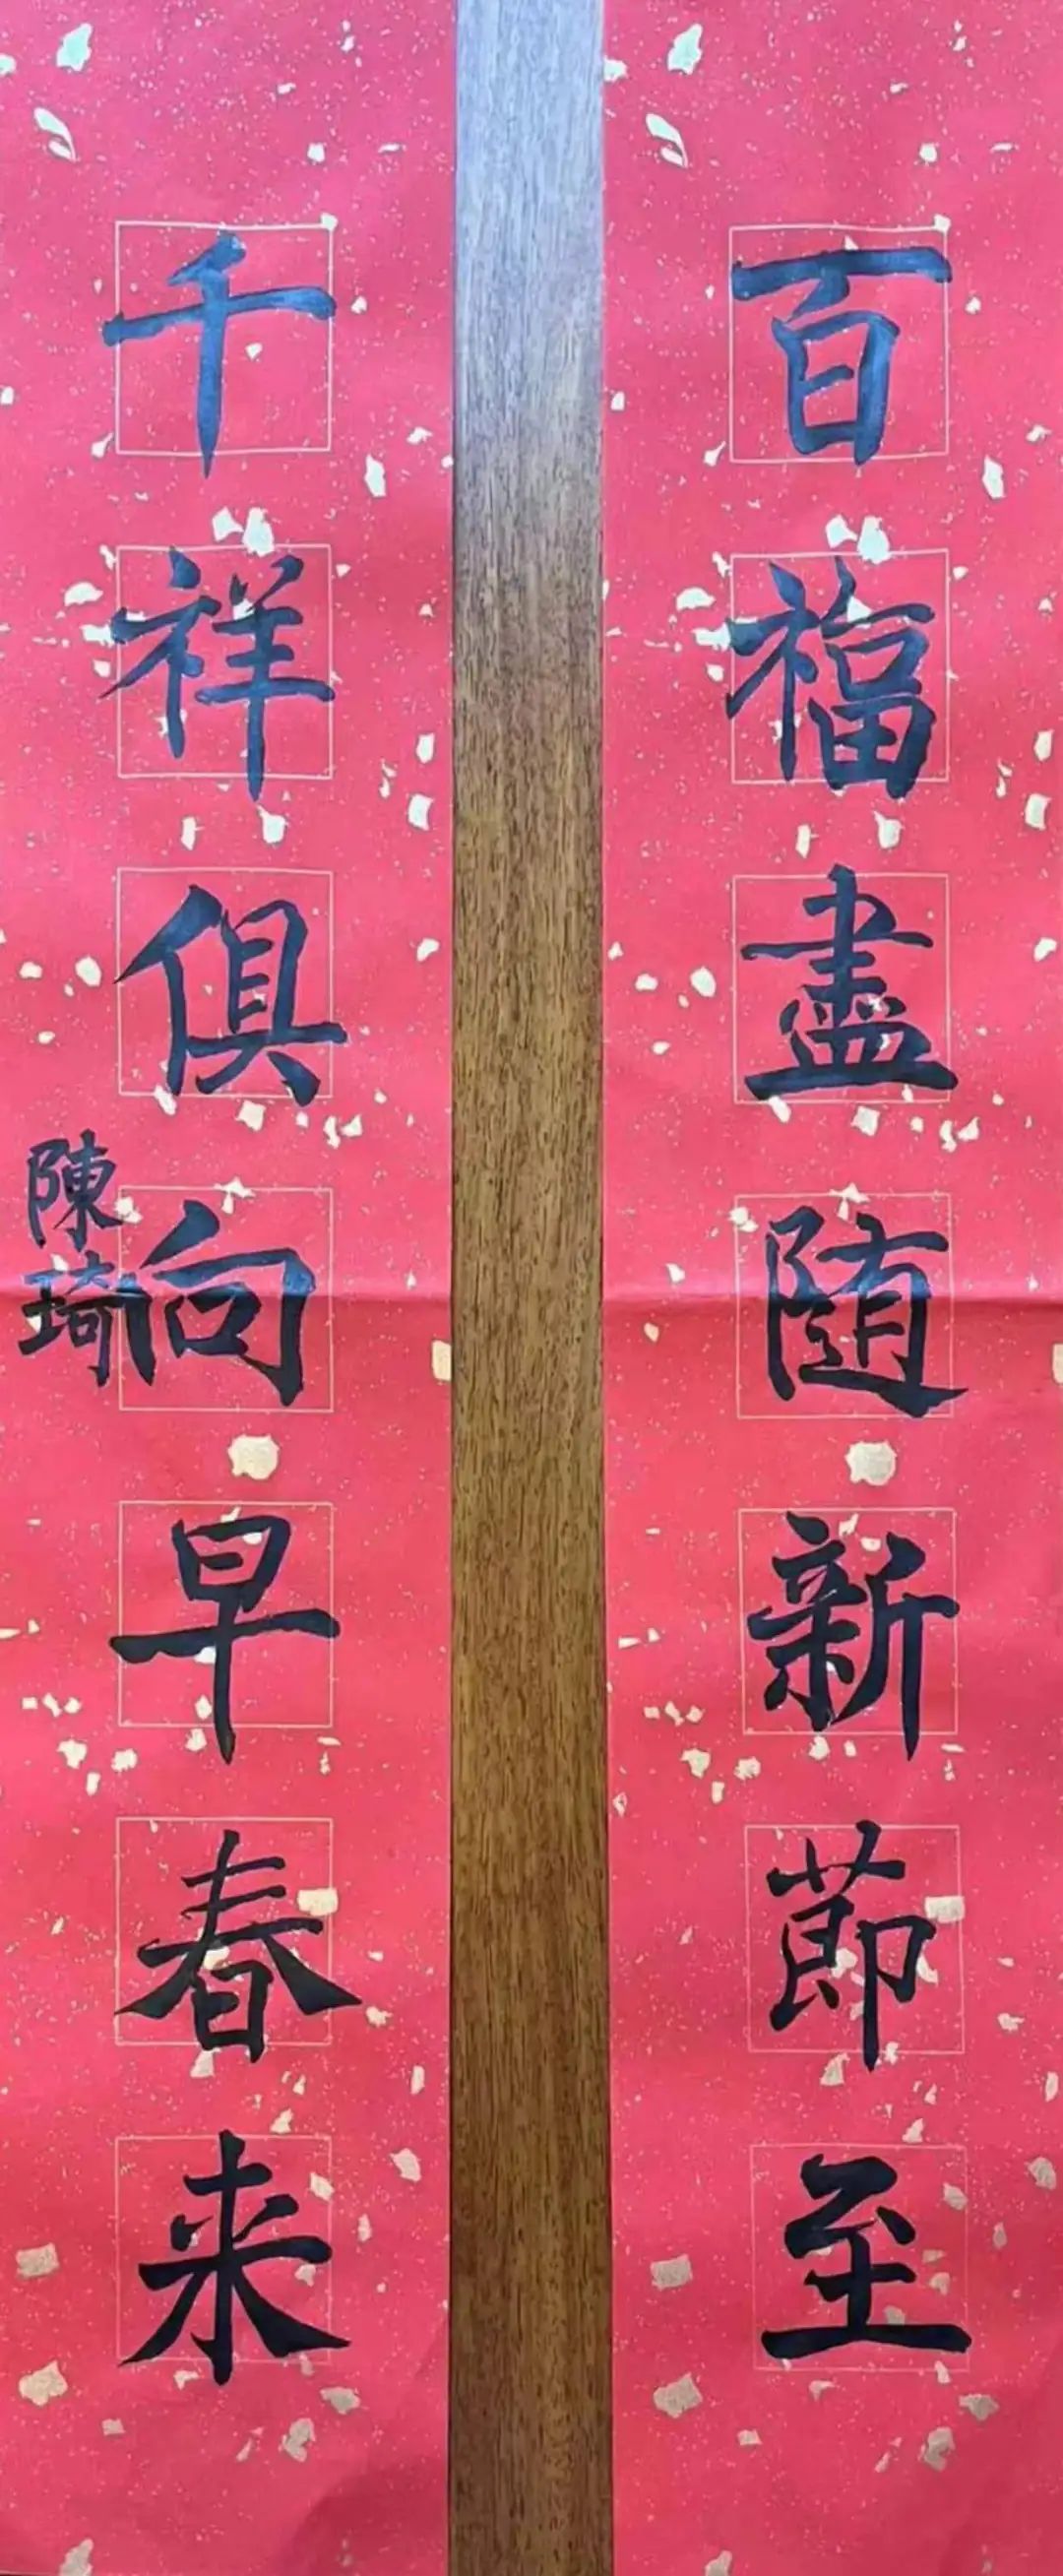 百福盡随新節至
千祥俱向早春来
陳琦